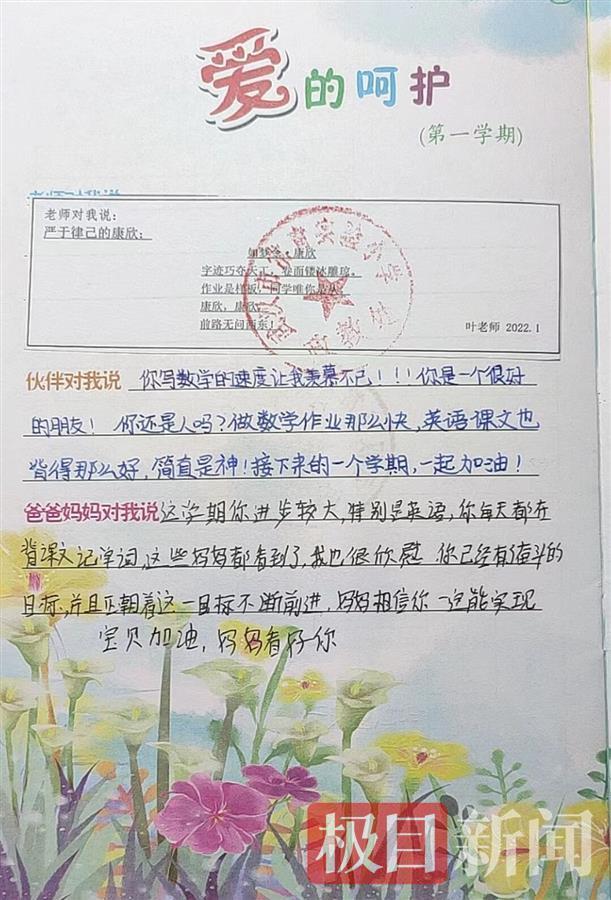 爱的呵护
(第一学期)
老师对我说:
严于律己的康欣:
康欣
字迹巧夺天工,卷面镂冰雕琼。
作业是样板,同学唯你是从。
康欣,康欣,
前路无问西东!
叶老师 2022.1
伙伴对我说 你写数学的速度让我羡慕不已!!!你是一个很好
的朋友!你还是人吗?做数学作业那么快,英语课文也
背得那么好,简直是神!接下来的一个学期,一起加油!
爸爸妈妈对我说 这学期你进步较大,特别是英语,你每天都在
背课文记单词,这些妈妈都看到了,我也很欣慰.你已经有奋斗的
目标,并且正朝着这一目标不断前进,妈妈相信你一定能实现
宝贝加油,妈妈看好你
极目新闻